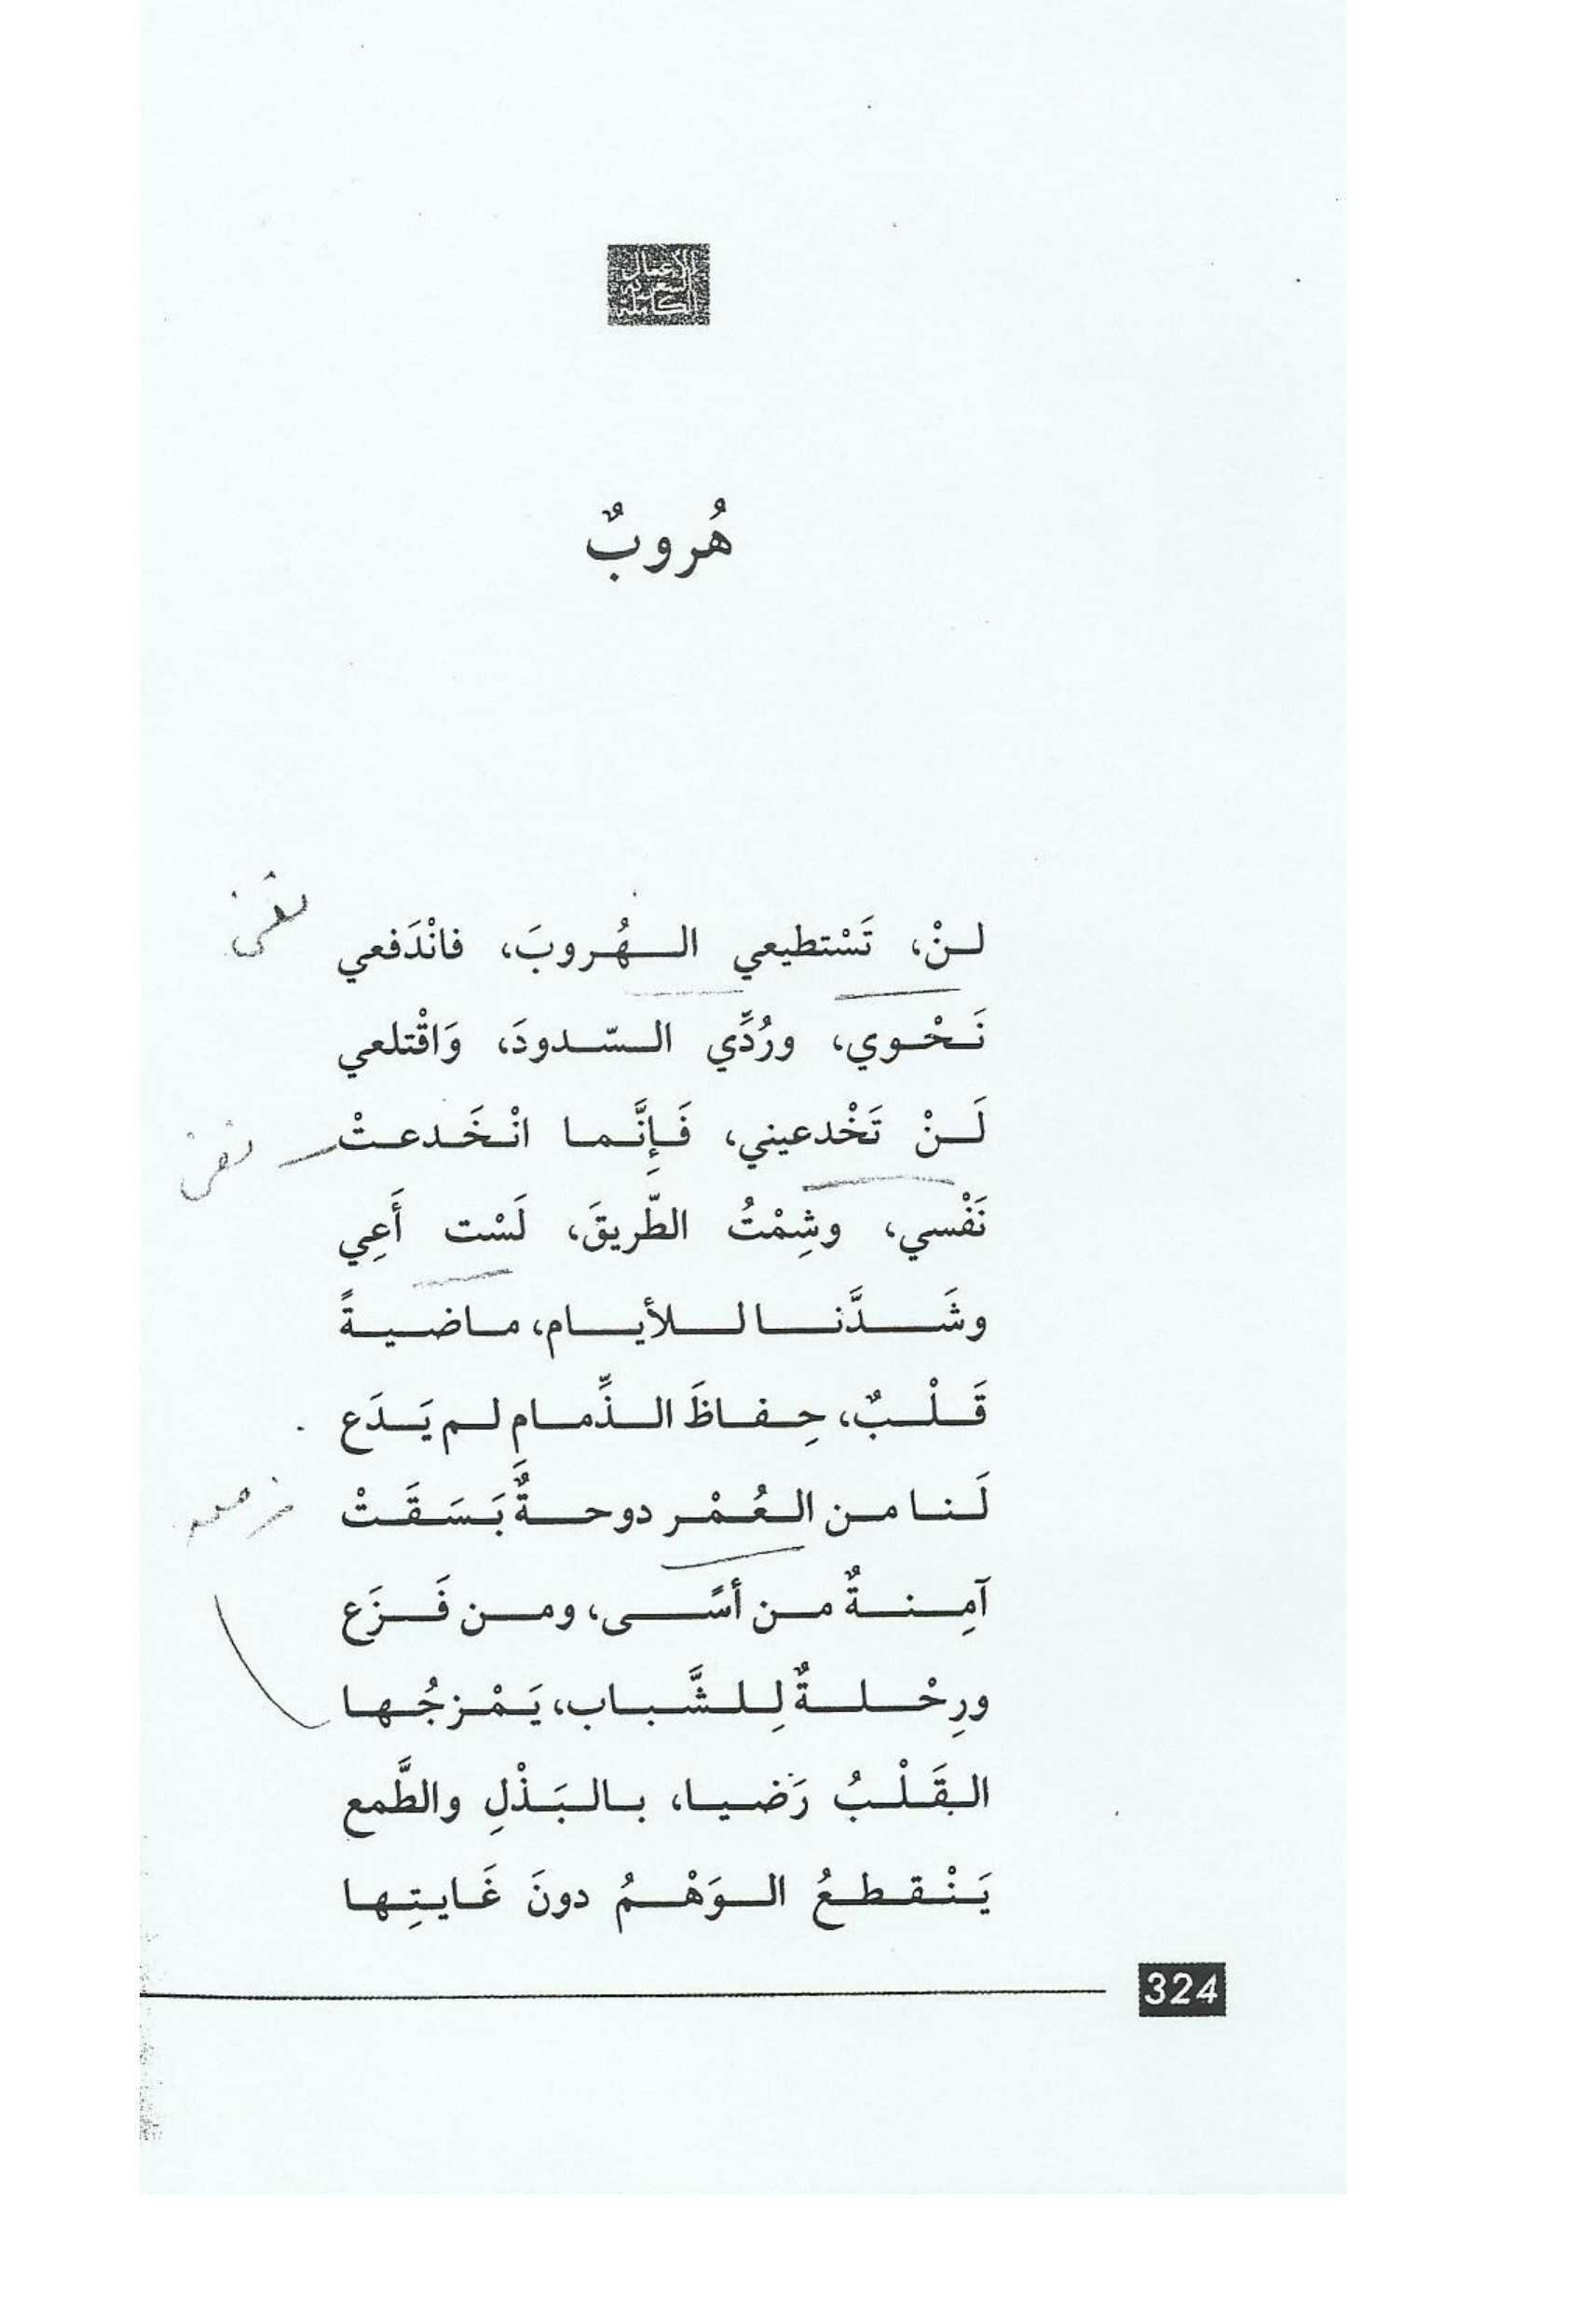 الأعمال
الشعرية
الكاملة
هُروبٌ
لنْ، تَسْتطيعي الهُروبَ، فانْدَفعي
نَحْوي، ورُدِّي السّدودَ، وَاقْتلعي
لَنْ تَخْدعيني، فَإِنَّما انْخَدعتْ
نَفْسي، وشِمْتُ الطّريقَ، لَسْت أَعِي
وشَدَّنا للأيام، ماضيةً
قَلْبٌ، حِفاظَ الذِّمامِ لم يَدَع
لَنا من العُمْرِ دوحةٌ بَسَقَتْ
آمِنةٌ من أسًى، ومن فَزَع
ورِحْلةٌ لِلشَّباب، يَمْزجُها
القَلْبُ رَضيا، بالبَذْلِ والطَّمع
يَنْقطعُ الوَهْمُ دونَ غَايتِها
324